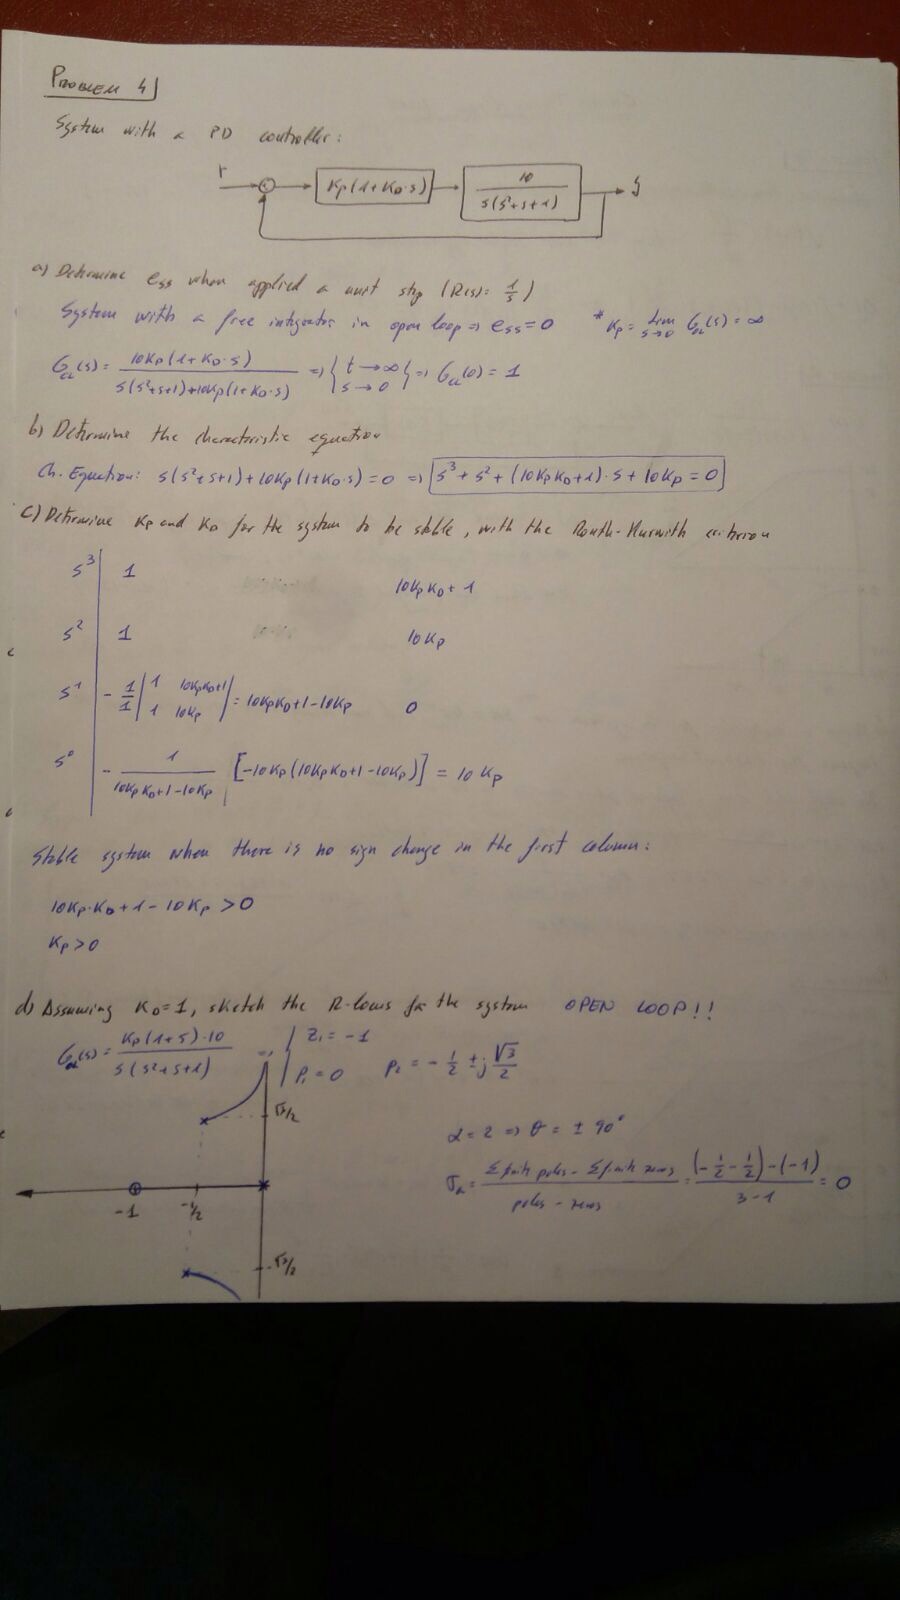 PROBLEM 4
System with a PD controller:
r
Kp(1+KD·s)
10
s(s²+s+1)
y
a) Determine ess when applied a unit step (R(s)= 1/s)
System with a free integrator in open loop => ess=0 * Kp = lim s→0 GOL(s) = ∞
GCL(s) = 10Kp(1+KD·s) / s(s²+s+1)+10Kp(1+KD·s) => { t→∞ s→0 } => GCL(0) = 1
b) Determine the characteristic equation
Ch. Equation: s(s²+s+1)+10Kp(1+KD·s)=0 => s³+s²+(10KpKD+1)·s+10Kp=0
c) Determine Kp and KD for the system to be stable, with the Routh-Hurwith criterion
s³ 1 10KpKD+1
s² 1 10Kp
s¹ - 1/1 | 1 10KpKD+1 | = 10KpKD+1-10Kp 0
1 10Kp
s⁰ - 1 / 10KpKD+1-10Kp [-10Kp(10KpKD+1-10Kp)] = 10Kp
Stable system when there is no sign change in the first column:
10Kp·KD+1-10Kp>0
Kp>0
d) Assuming KD=1, sketch the R-locus for the system OPEN LOOP!!
GOL(s) = Kp(1+s)·10 / s(s²+s+1) => Z1=-1
P1=0 P2=-1/2 ±j √3/2
√3/2
α=2 => θ=±90°
σA = Σfinite poles - Σfinite zeros / poles - zeros = (-1/2-1/2)-(-1) / 3-1 = 0
-1 -1/2
-√3/2